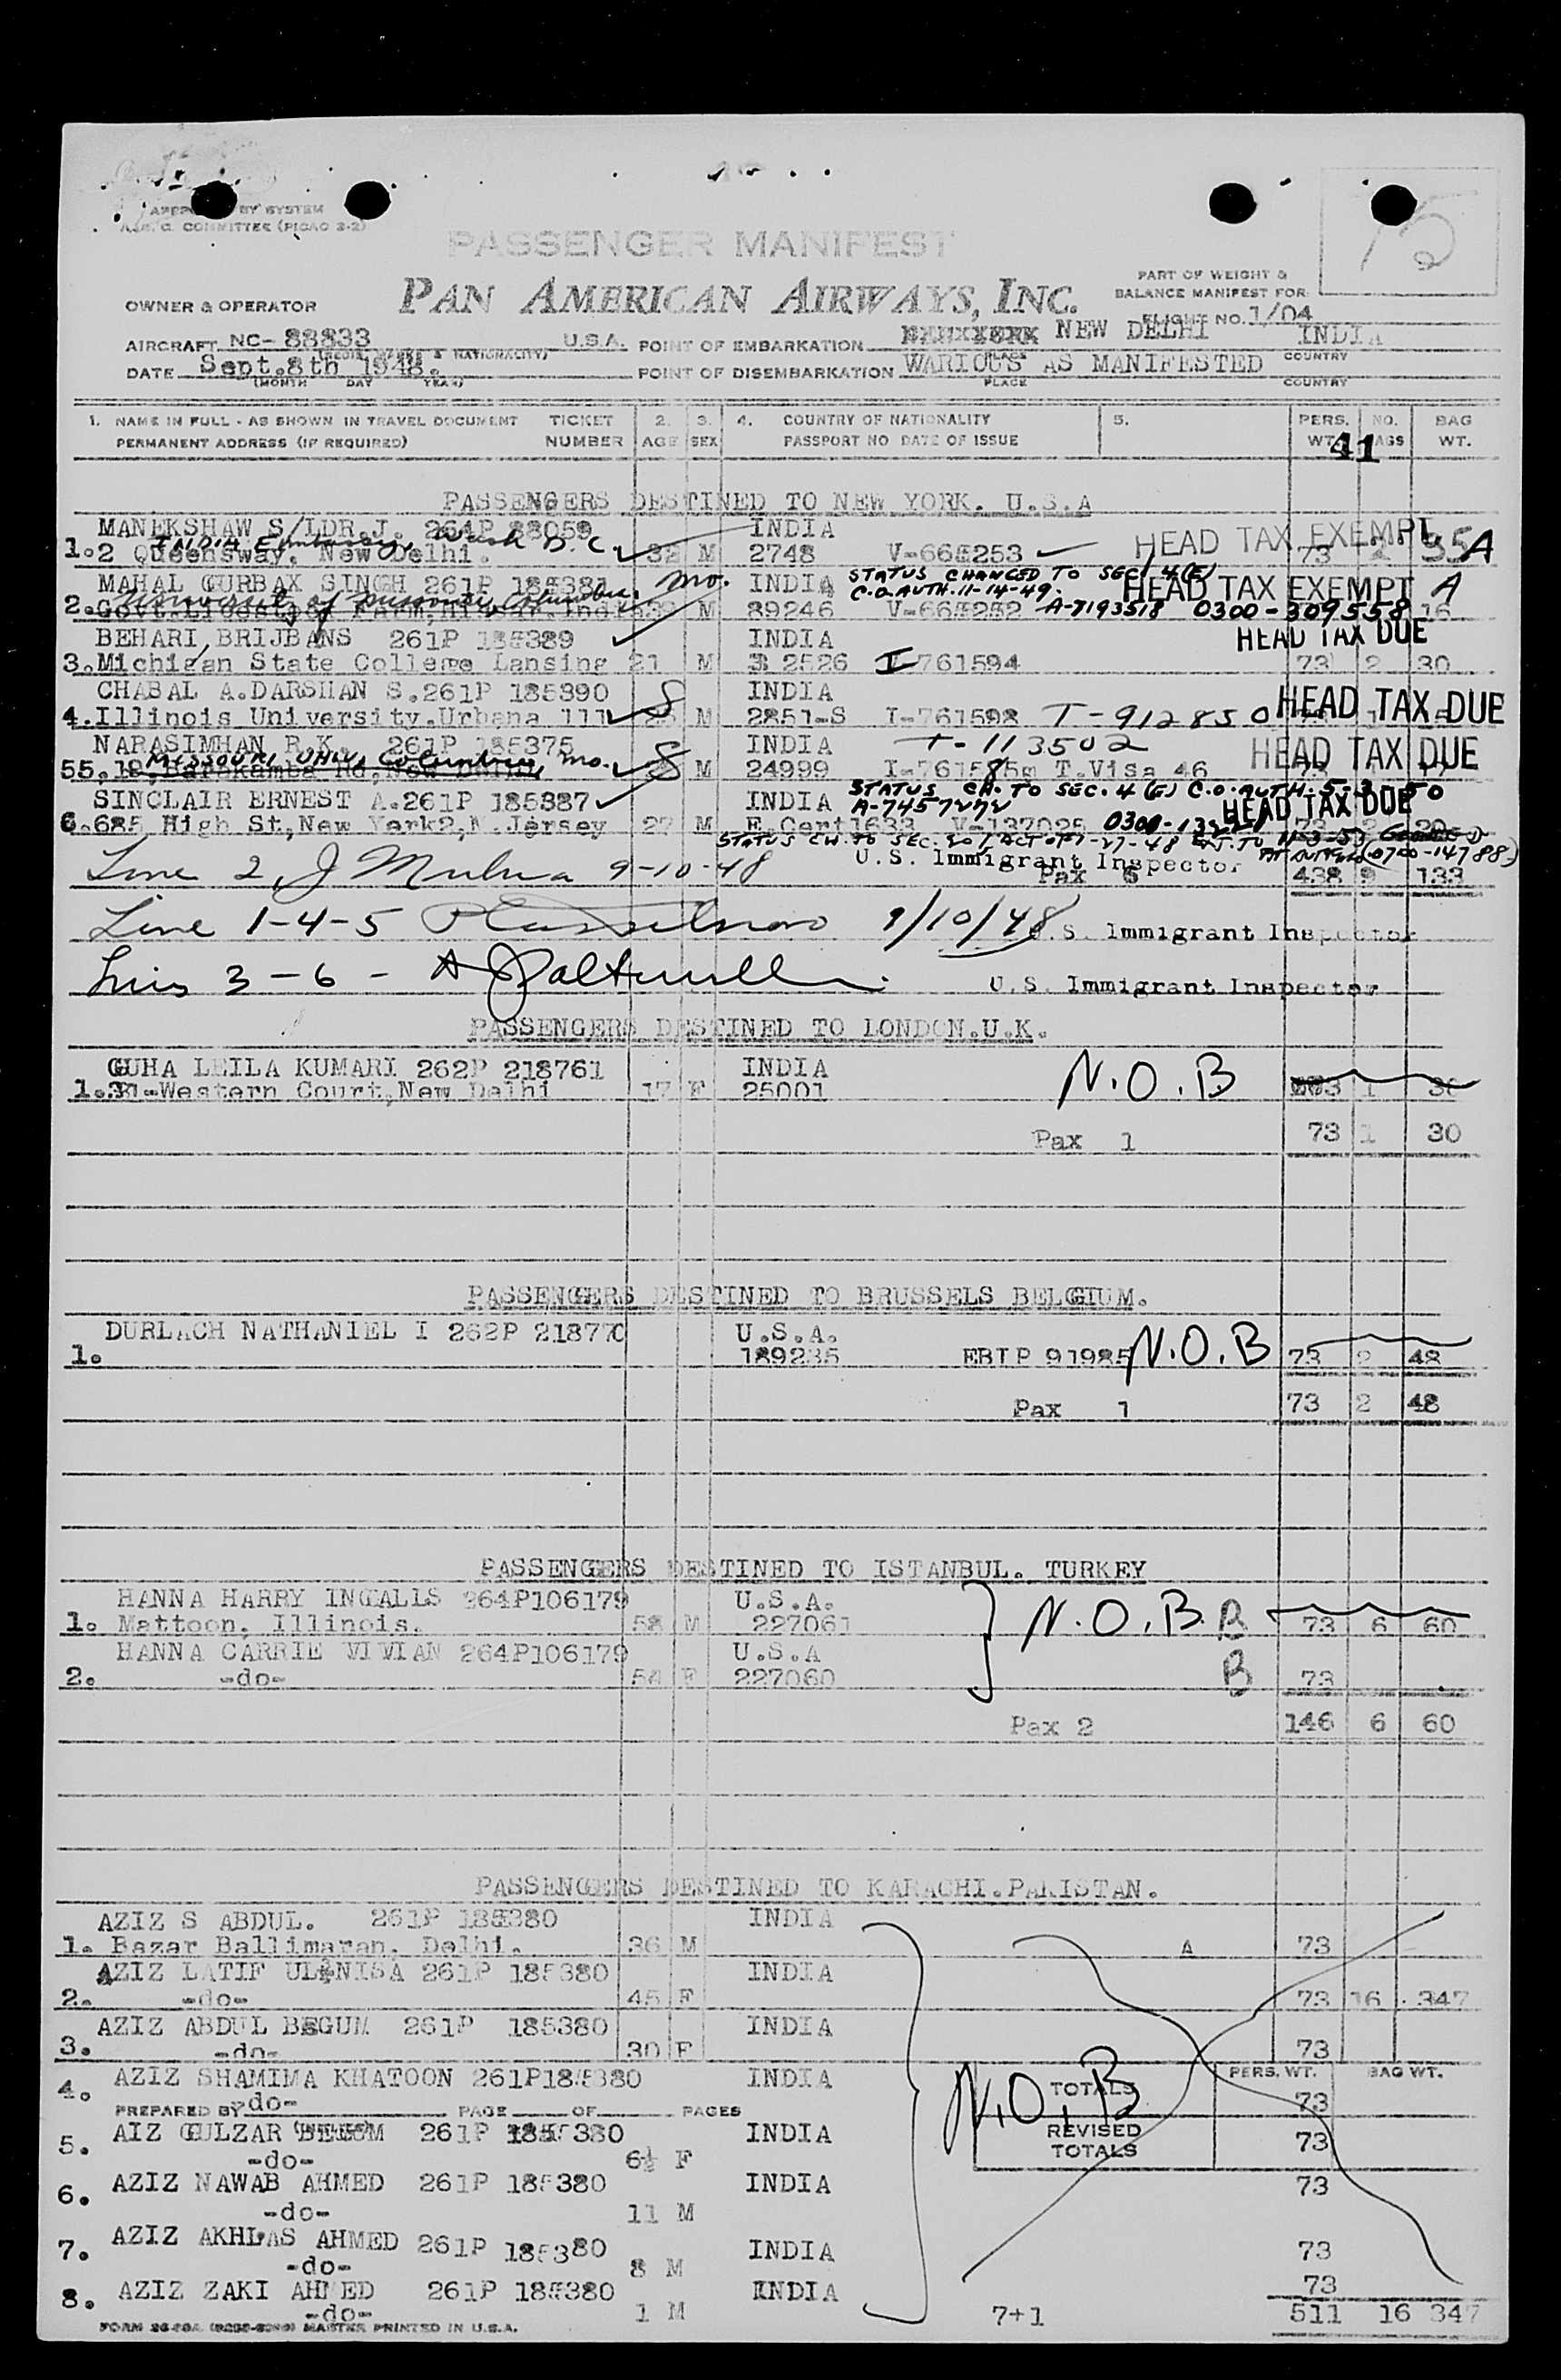 PASSENGER MANIFEST
75
PAN AMERICAN AIRWAYS, INC.
PART OF WEIGHT &
BALANCE MANIFEST FOR
OWNER & OPERATOR
FLIGHT NO. 1/04
AIRCRAFT NC- 88833 U.S.A. POINT OF EMBARKATION NEW DELHI INDIA
DATE Sept.8th 1948. POINT OF DISEMBARKATION WARIOUS AS MANIFESTED
(MONTH DAY YEAR) PLACE COUNTRY
1. NAME IN FULL - AS SHOWN IN TRAVEL DOCUMENT TICKET 2. 3. 4. COUNTRY OF NATIONALITY 5. PERS. NO. BAG
PERMANENT ADDRESS (IF REQUIRED) NUMBER AGE SEX PASSPORT NO DATE OF ISSUE WT. BAGS WT.
41
PASSENGERS DESTINED TO NEW YORK. U.S.A
MANEKSHAW S/LDR.J. 264P 88059 INDIA HEAD TAX EXEMPT
India Embassy, Wash D.C.
1. 2 Queensway, New Delhi. 32 M 2748 V-665253 73 2 35 A
MAHAL GURBAX SINGH 261P 185381 INDIA STATUS CHANGED TO SEC. 4(E) HEAD TAX EXEMPT A
University of Missouri, Columbia, Mo. C.O. AUTH. 11-14-49.
2. M 39246 V-665252 A-7193518 0300-309558 16
BEHARI BRIJBANS 261P 185389 INDIA HEAD TAX DUE
3. Michigan State College Lansing 21 M 2526 I-761594 73 2 30
CHABAL A.DARSHAN S. 261P 185390 INDIA HEAD TAX DUE
4. Illinois University.Urbana Ill M 2851-S I-761598 T-912850
NARASIMHAN R.K. 261P 185375 INDIA T-113502 HEAD TAX DUE
Missouri Univ, Columbia, Mo.
5 M 24999 T.Visa 46
SINCLAIR ERNEST A. 261P 185387 INDIA STATUS CH. TO SEC. 4(E) C.O. AUTH. 5-3-50
A-7457272 HEAD TAX DUE
6. 685 High St, New York2, N.Jersey 27 M E Cert1633 V-137025
Line 2, J 9-10-48 U.S. Immigrant Inspector
Pax 6 438 9 133
Line 1-4-5 9/10/48 U.S. Immigrant Inspector
Lines 3-6 - U.S. Immigrant Inspector
PASSENGERS DESTINED TO LONDON.U.K.
GUHA LEILA KUMARI 262P 218761 INDIA N.O.B
1. Western Court, New Delhi 17 F 25001 73 1 30
Pax 1 73 1 30
PASSENGERS DESTINED TO BRUSSELS BELGIUM.
DURLACH NATHANIEL I 262P 218770 U.S.A. N.O.B
1. 189235 EBIP 91985 73 2 48
Pax 1 73 2 48
PASSENGERS DESTINED TO ISTANBUL. TURKEY
HANNA HARRY INGALLS 264P106179 U.S.A. N.O.B.
1. Mattoon, Illinois. 58 M 227061 B 73 6 60
HANNA CARRIE VIVIAN 264P106179 U.S.A
2. -do- 54 F 227060 B 73
Pax 2 146 6 60
PASSENGERS DESTINED TO KARACHI.PAKISTAN.
AZIZ S ABDUL. 261P 185380 INDIA
1. Bazar Ballimaran, Delhi. 36 M A 73
AZIZ LATIF ULNISA 261P 185380 INDIA
2. -do- 45 F 73 16 347
AZIZ ABDUL BEGUM 261P 185380 INDIA
3. -do- 30 F 73
4. AZIZ SHAMIMA KHATOON 261P185380 INDIA N.O.B TOTALS PERS. WT. BAG WT.
-do- 73
PREPARED BY PAGE OF PAGES
5. AIZ GULZAR BEGUM 261P 185380 INDIA REVISED TOTALS 73
-do- 6½ F
6. AZIZ NAWAB AHMED 261P 185380 INDIA 73
-do- 11 M
7. AZIZ AKHLAS AHMED 261P 185380 INDIA 73
-do- 8 M
8. AZIZ ZAKI AHMED 261P 185380 INDIA 73
-do- 1 M 7+1 511 16 347
MASTER PRINTED IN U.S.A.